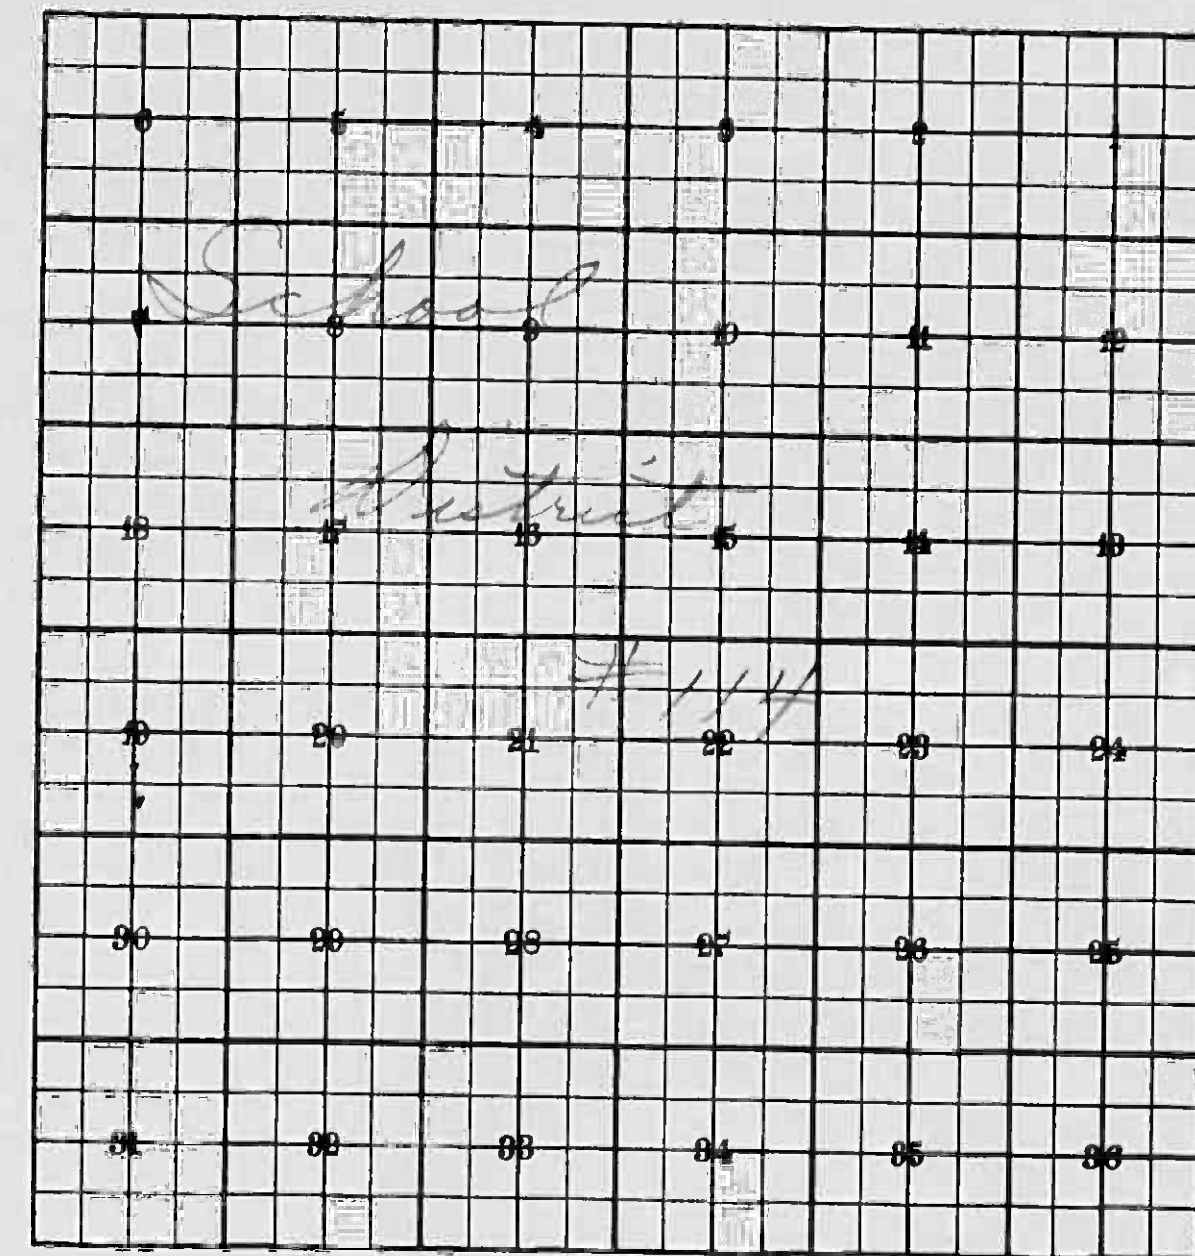 6 5 4 3 2 1
School
7 8 9 10 11 12
District
18 17 16 15 14 13
# 114
19 20 21 22 23 24
30 29 28 27 26 25
31 32 33 34 35 36